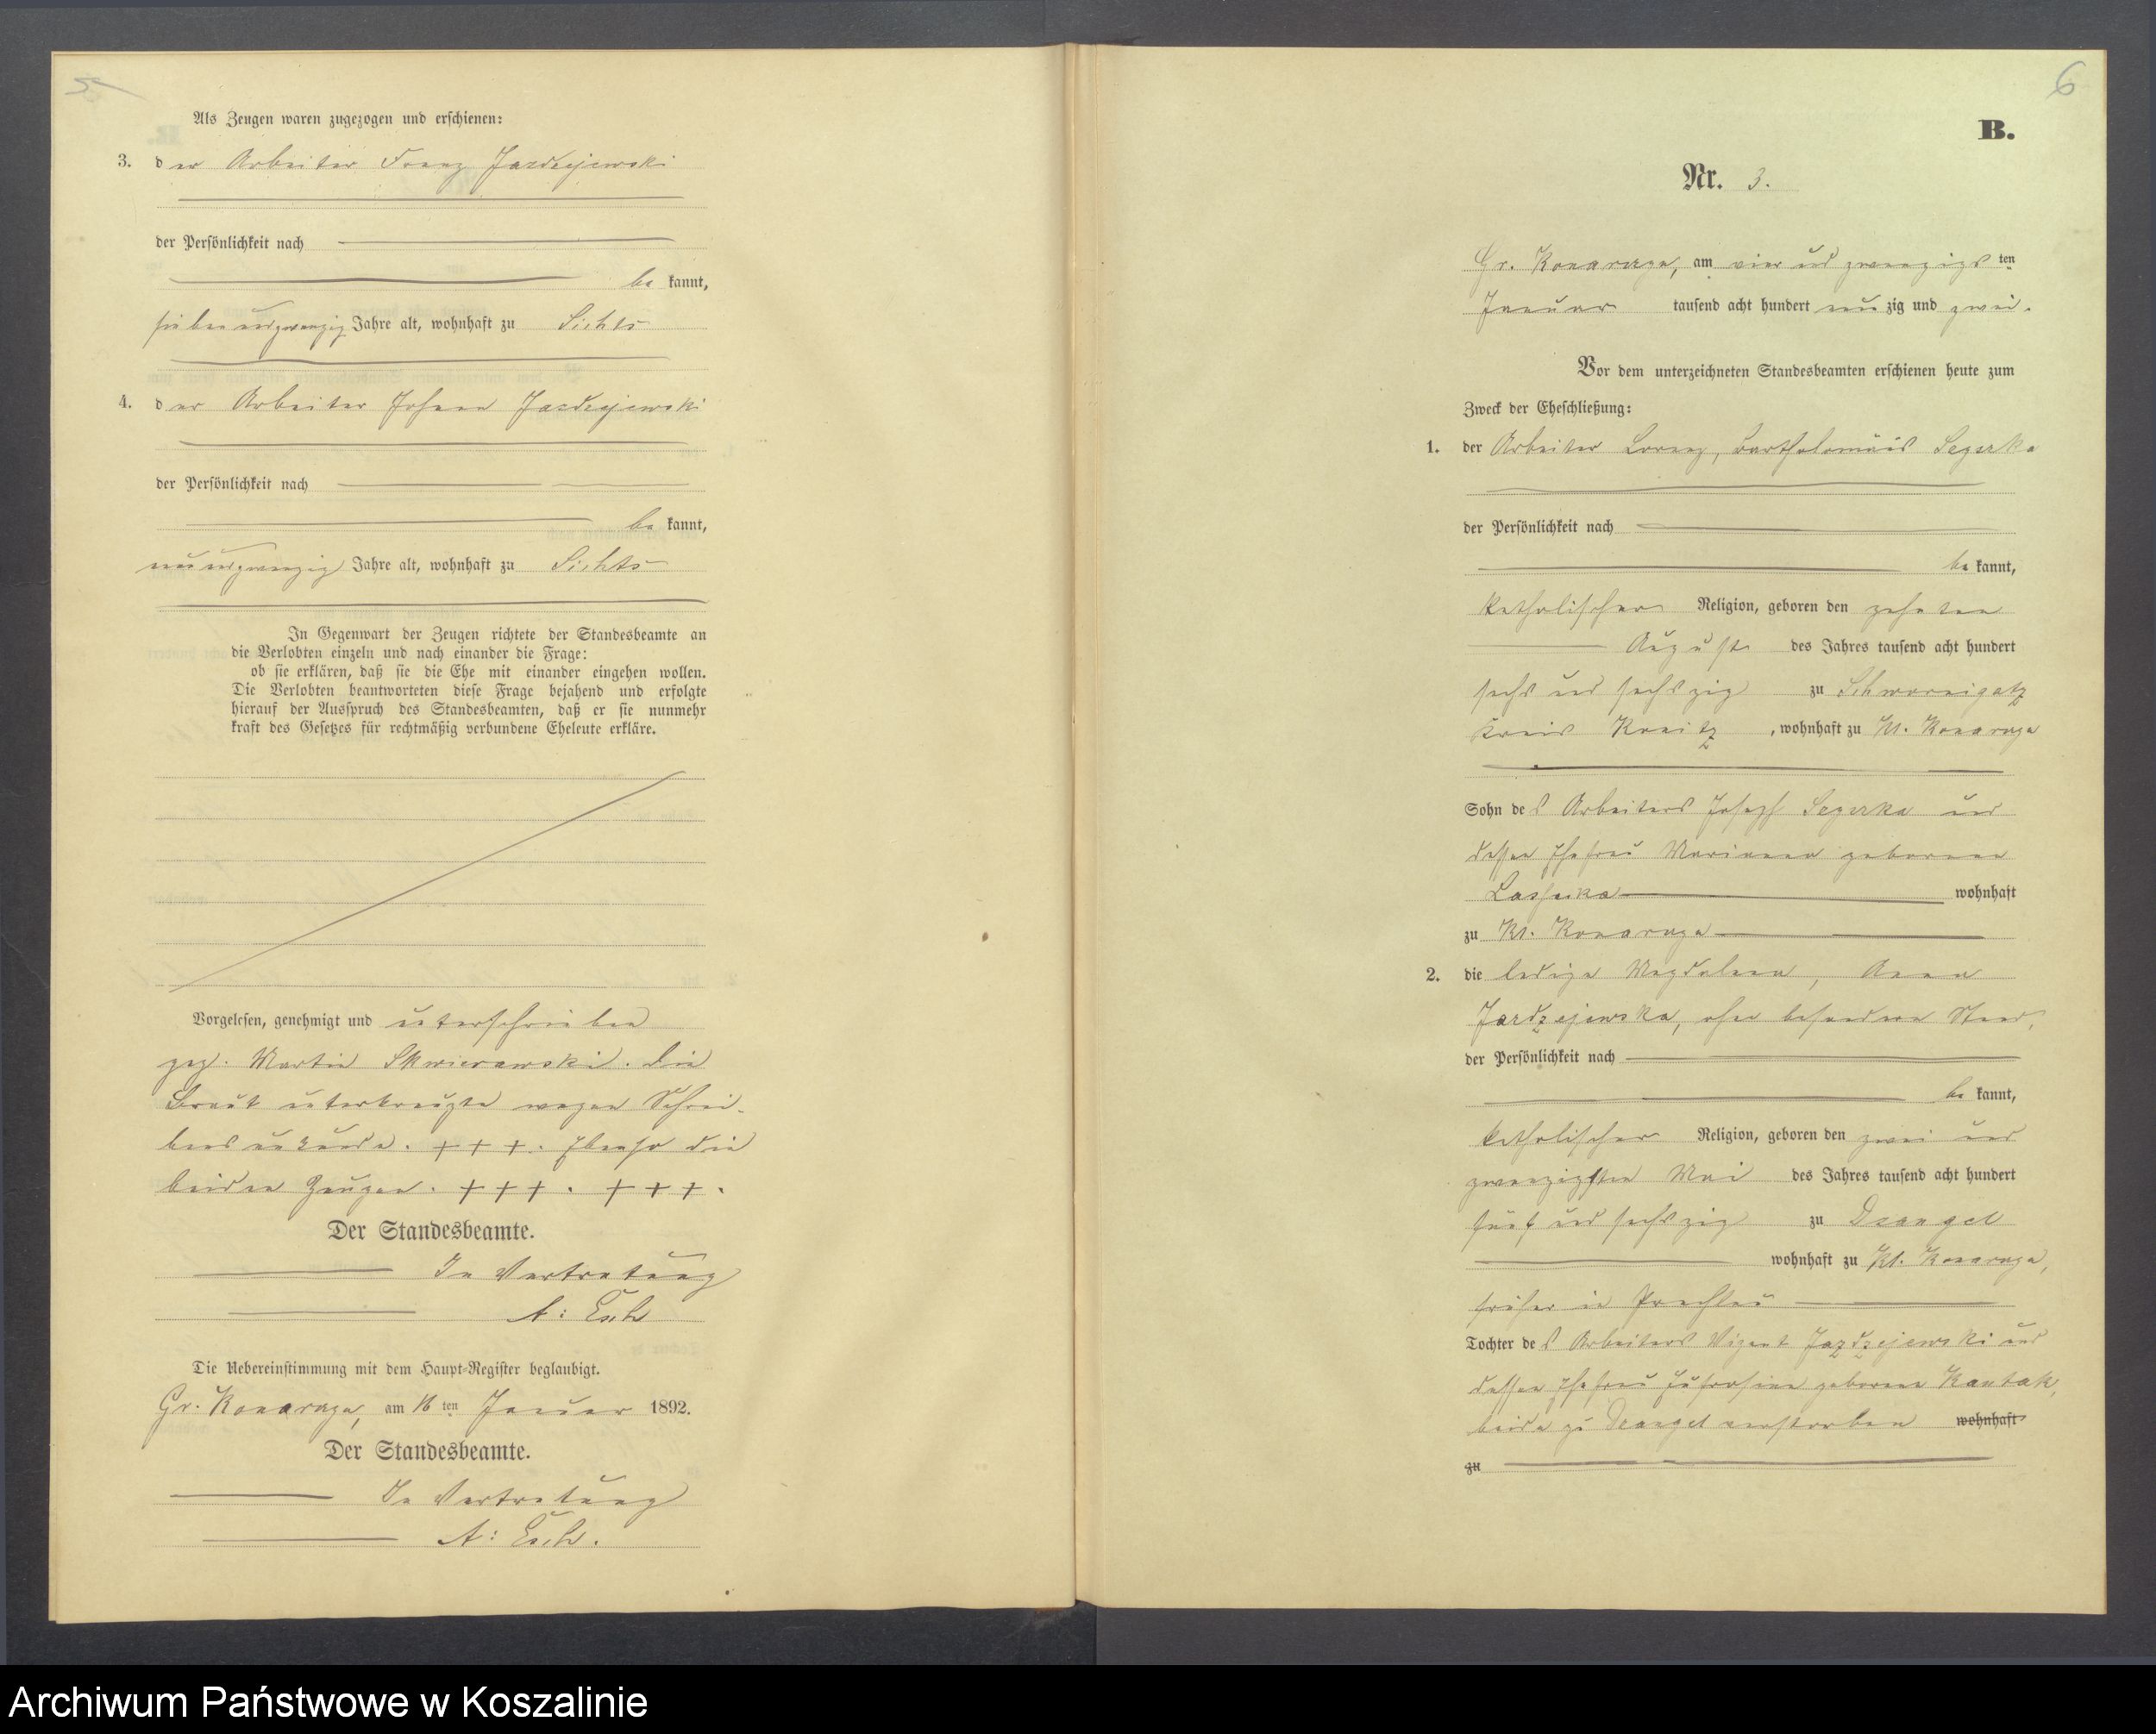 5
Als Zeugen waren zugezogen und erschienen:
3. der Arbeiter Franz Jazdzejewski
der Persönlichkeit nach
be kannt,
siebenundzwanzig Jahre alt, wohnhaft zu Sichts
4. der Arbeiter Johann Jazdzejewski
der Persönlichkeit nach
be kannt,
neunundzwanzig Jahre alt, wohnhaft zu Sichts
In Gegenwart der Zeugen richtete der Standesbeamte an
die Verlobten einzeln und nach einander die Frage:
ob sie erklären, daß sie die Ehe mit einander eingehen wollen.
Die Verlobten beantworteten diese Frage bejahend und erfolgte
hierauf der Ausspruch des Standesbeamten, daß er sie nunmehr
kraft des Gesetzes für rechtmäßig verbundene Eheleute erkläre.
Vorgelesen, genehmigt und unterschrieben
gez. Martin Skwierawski. Die
Braut unterkreuzte wegen Schrei-
bensunkunde. +++. Ebenso die
beiden Zeugen. +++. +++.
Der Standesbeamte.
In Vertretung
A: Esch
Die Uebereinstimmung mit dem Haupt-Register beglaubigt.
Gr. Konarzyn, am 16 ten Januar 1892.
Der Standesbeamte.
In Vertretung
A: Esch.
6
B.
Nr. 3.
Gr. Konarzyn, am vier und zwanzigs ten
Januar tausend acht hundert neun zig und zwei.
Vor dem unterzeichneten Standesbeamten erschienen heute zum
Zweck der Eheschließung:
1. der Arbeiter Lorenz, Bartholomäus
der Persönlichkeit nach
be kannt,
katholischer Religion, geboren den zehnten
August des Jahres tausend acht hundert
sechs und sechszig zu Schwornigatz
Kreis Konitz, wohnhaft zu Kl. Konarzyn
Sohn des Arbeiters Joseph und
dessen Ehefrau Marianna geborenen
wohnhaft
zu Kl. Konarzyn
2. die ledige Magdalena, Anna
Jazdzejewska, ohne besonderen Stand,
der Persönlichkeit nach
be kannt,
katholischer Religion, geboren den zwei und
zwanzigsten Mai des Jahres tausend acht hundert
fünf und sechszig zu Dzangel
wohnhaft zu Kl. Konarzyn,
früher in Prechlau
Tochter des Arbeiters Jazdzejewski und
dessen Ehefrau geborene Kantak,
beide zu Dzangel verstorben wohnhaft
zu
Archiwum Państwowe w Koszalinie